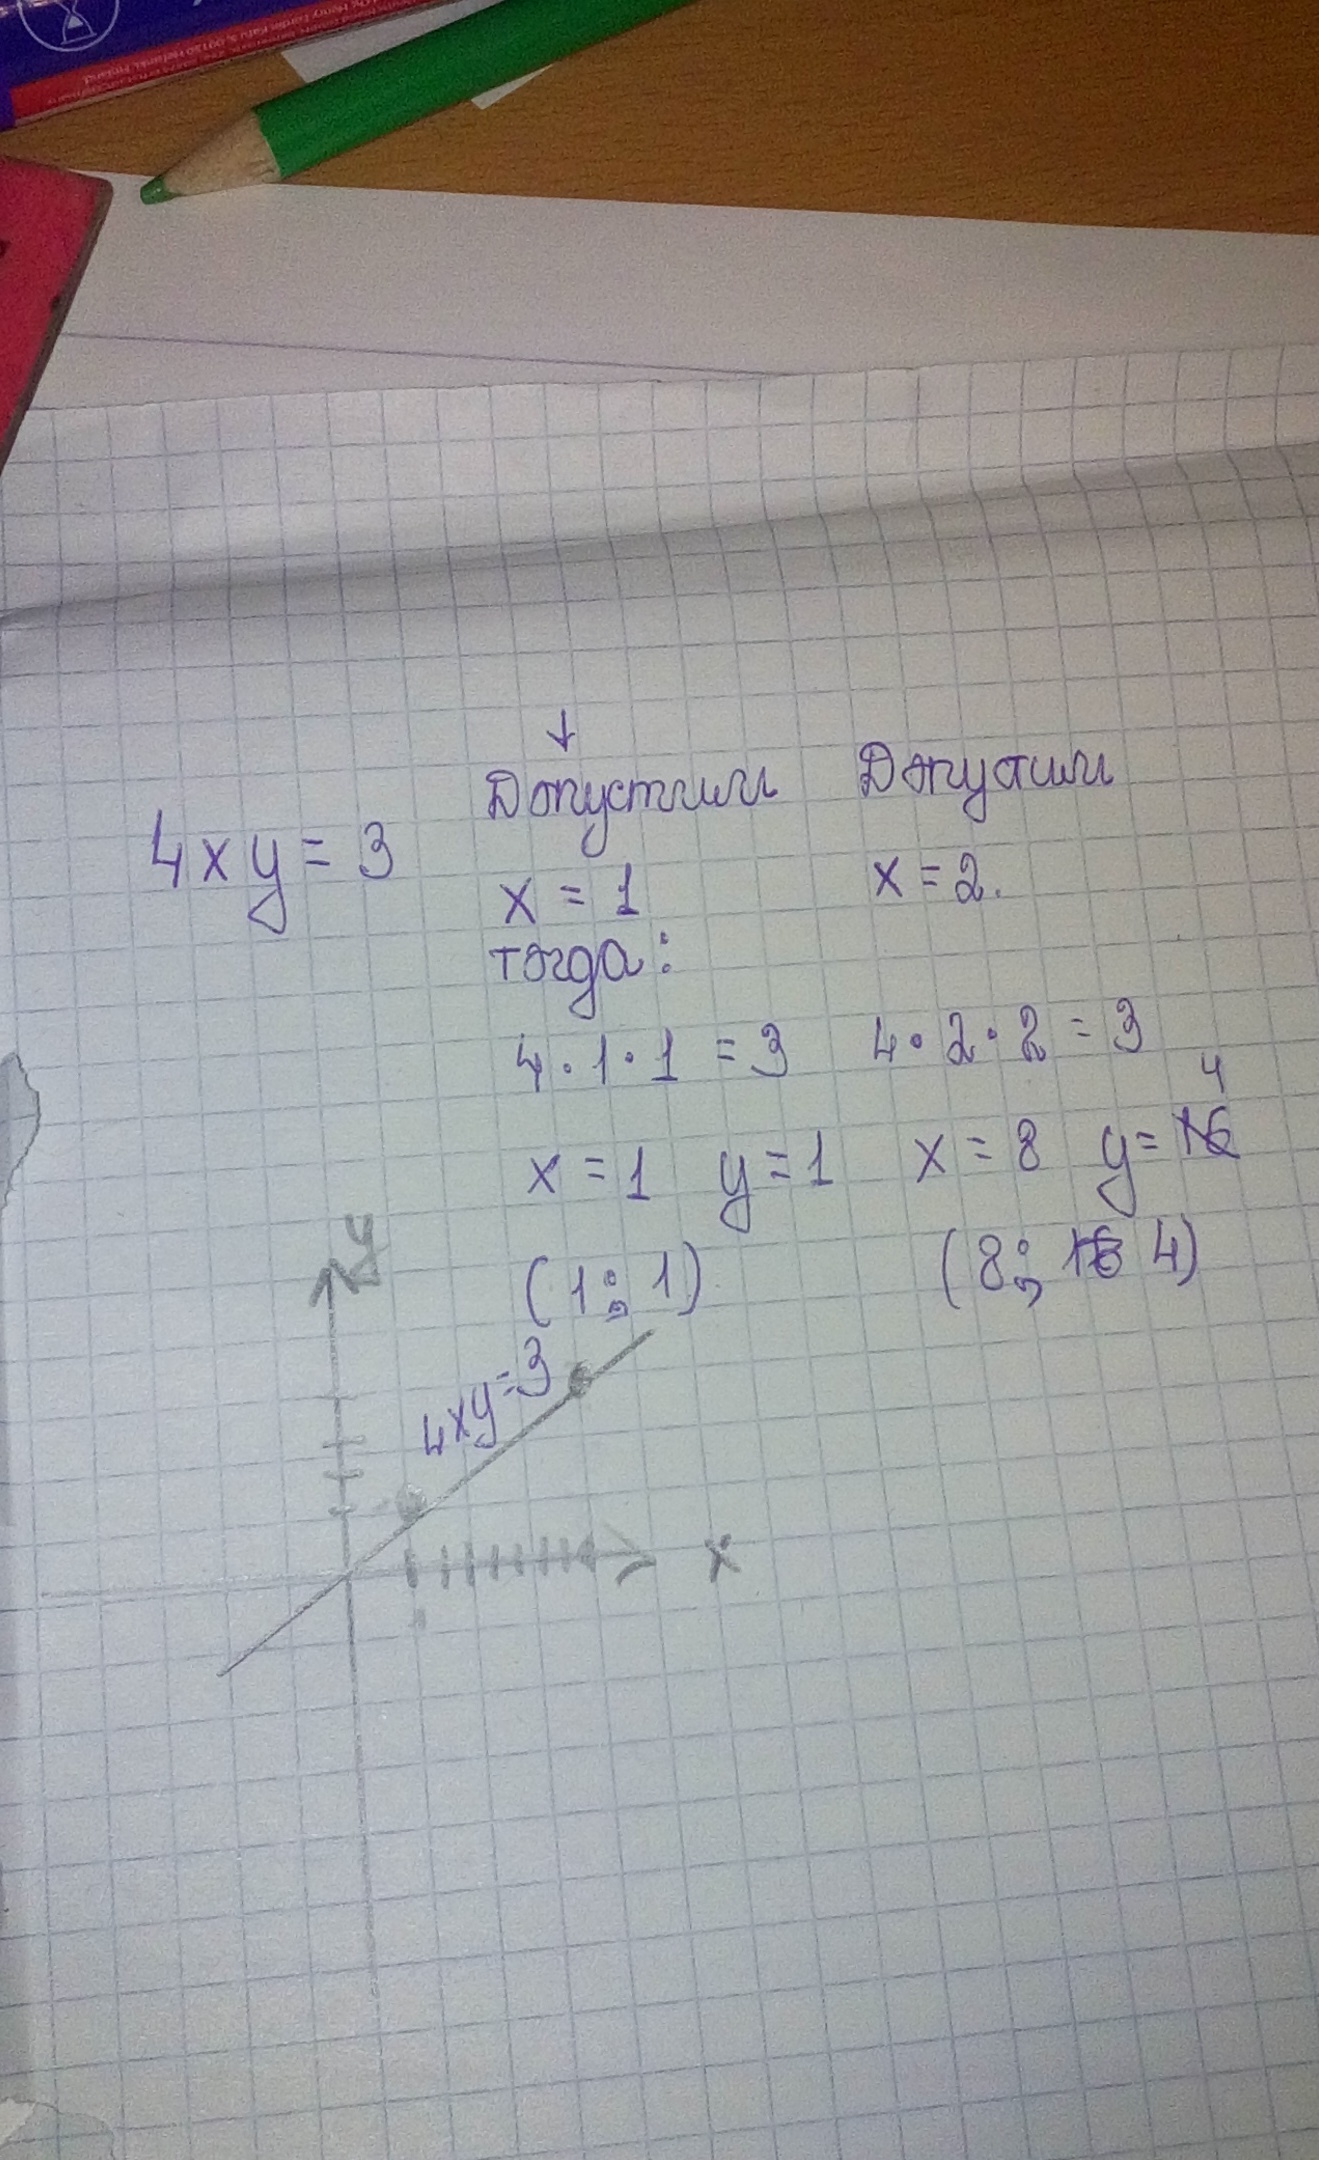 4xy = 3
↓
Допустим
x = 1
тогда:
4 · 1 · 1 = 3
x = 1 y = 1
(1; 1)
Допустим
x = 2.
4 · 2 · 2 = 3
4
x = 8 y = 16
(8; 16 4)
y
4xy = 3
x